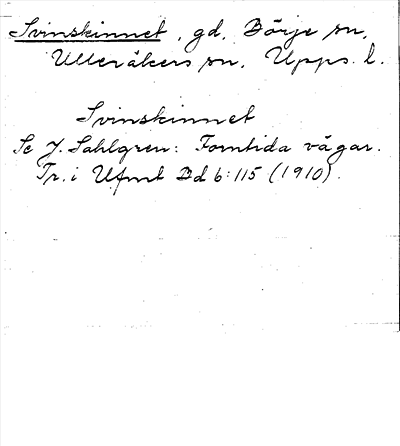 Svinskinnet, gd, Börje sn,
Ulleråkers sn, Upps. l.
Svinskinnet
Se J. Sahlgren: Forntida vägar.
Tr. i Ufmt Bd 6:115 (1910).